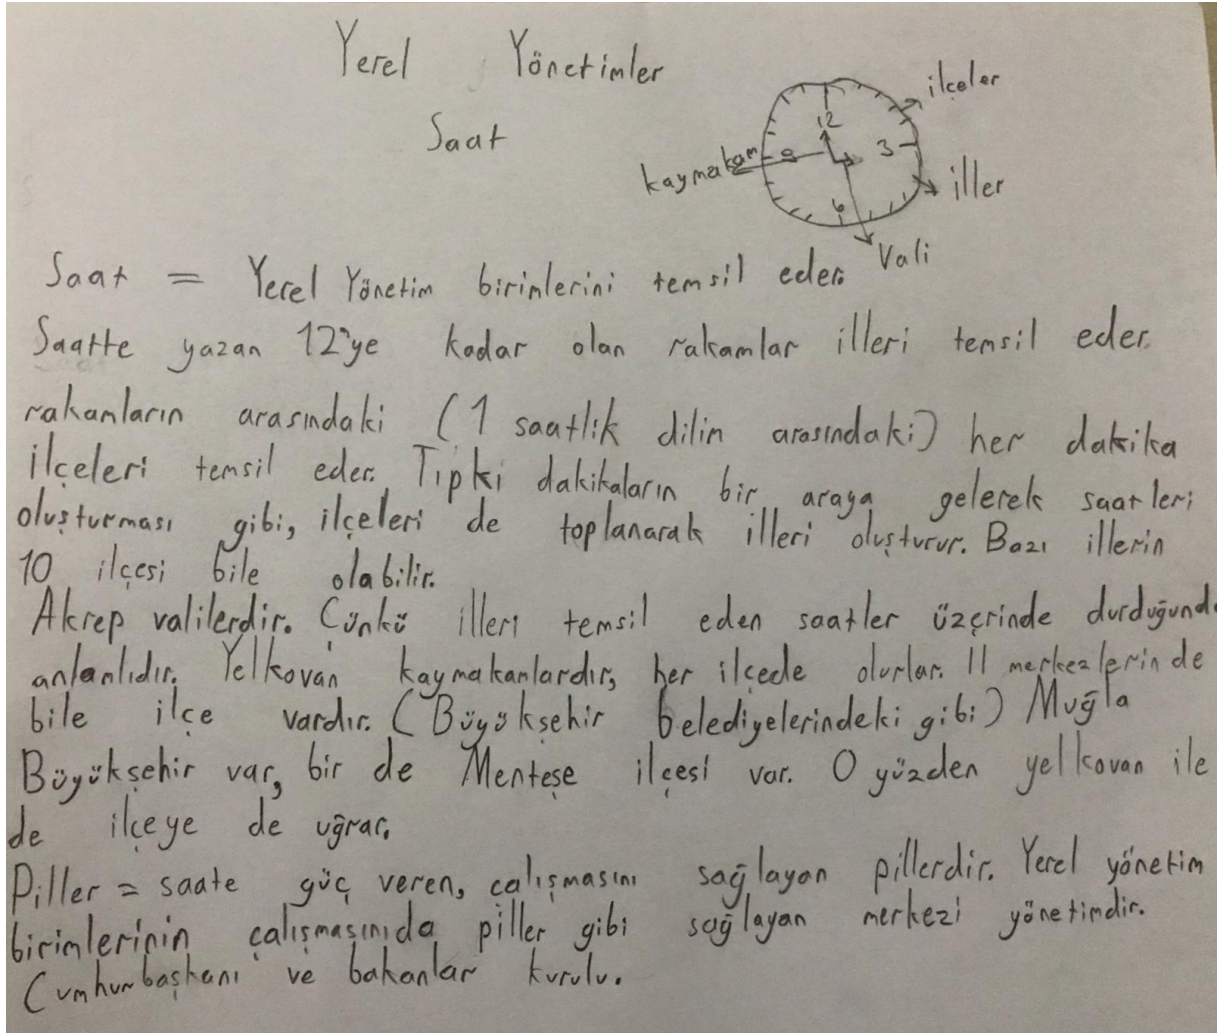 Yerel Yönetimler
Saat
ilçeler
12
3
9
6
kaymakam
iller
Vali
Saat = Yerel Yönetim birimlerini temsil eder.
Saatte yazan 12'ye kadar olan rakamlar illeri temsil eder.
rakamların arasındaki (1 saatlik dilim arasındaki) her dakika
ilçeleri temsil eder. Tıpkı dakikaların bir araya gelerek saatleri
oluşturması gibi, ilçeleri de toplanarak illeri oluşturur. Bazı illerin
10 ilçesi bile olabilir.
Akrep valilerdir. Çünkü illeri temsil eden saatler üzerinde durduğunda
anlamlıdır. Yelkovan kaymakamlardır, her ilçede olurlar. Il merkezlerinde
bile ilçe vardır. (Büyükşehir belediyelerindeki gibi) Muğla
Büyükşehir var, bir de Menteşe ilçesi var. O yüzden yelkovan ile
de ilçeye de uğrar.
Piller = saate güç veren, çalışmasını sağlayan pillerdir. Yerel yönetim
birimlerinin çalışmasınıda piller gibi sağlayan merkezi yönetimdir.
Cumhurbaşkanı ve bakanlar kurulu.